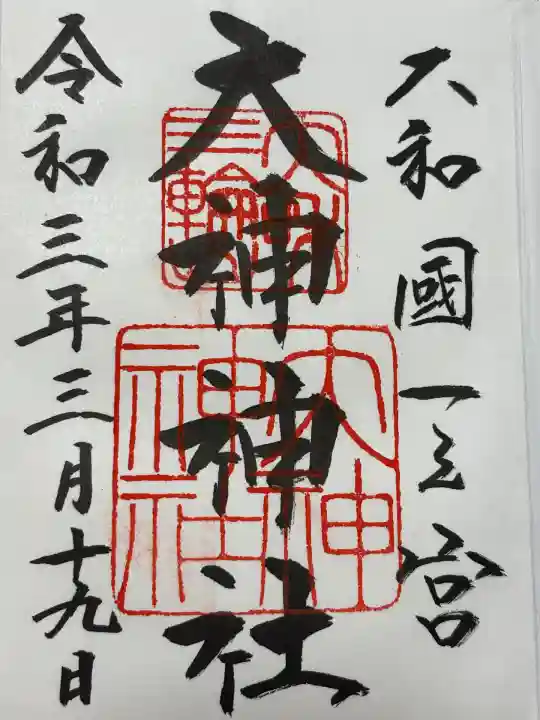 大和國一之宮
大神神社
令和三年三月十九日
大神神社